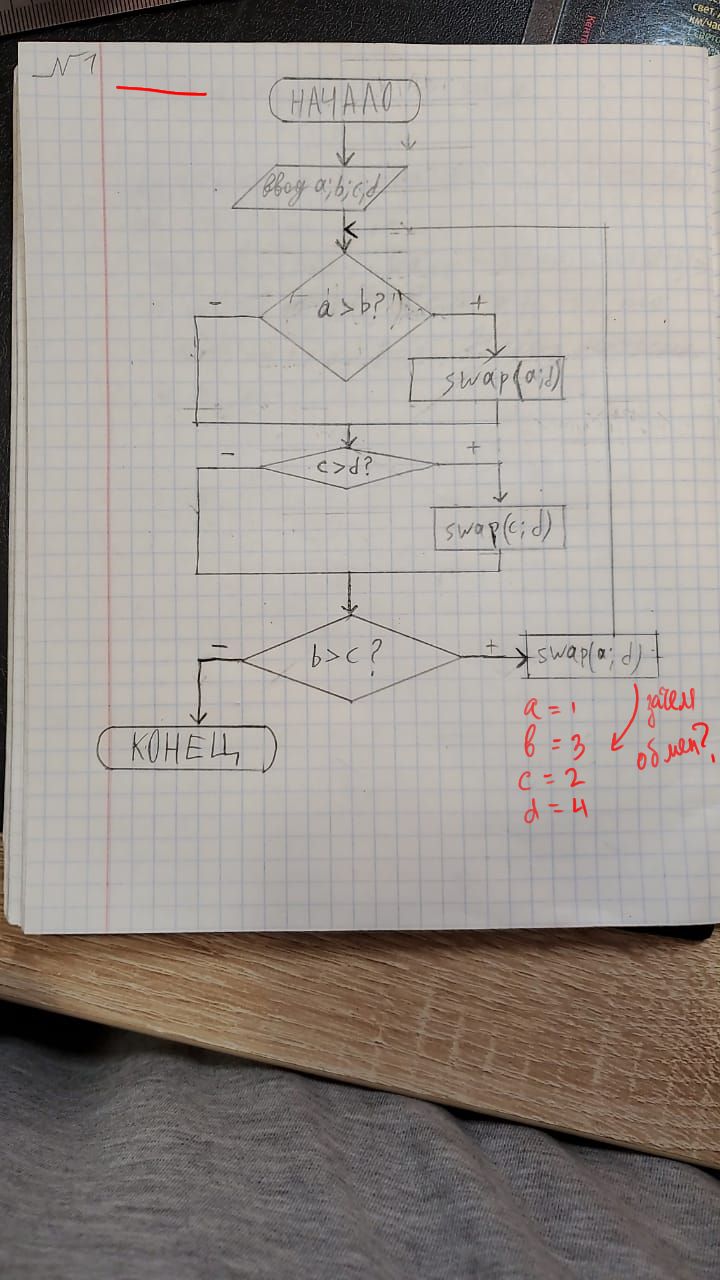 №1
НАЧАЛО
Ввод a;b;c;d
a>b?
- +
swap(a;d)
c>d?
- +
swap(c;d)
b>c?
- +
swap(a;d)
КОНЕЦ
a = 1
b = 3
c = 2
d = 4
зачем
обмен?